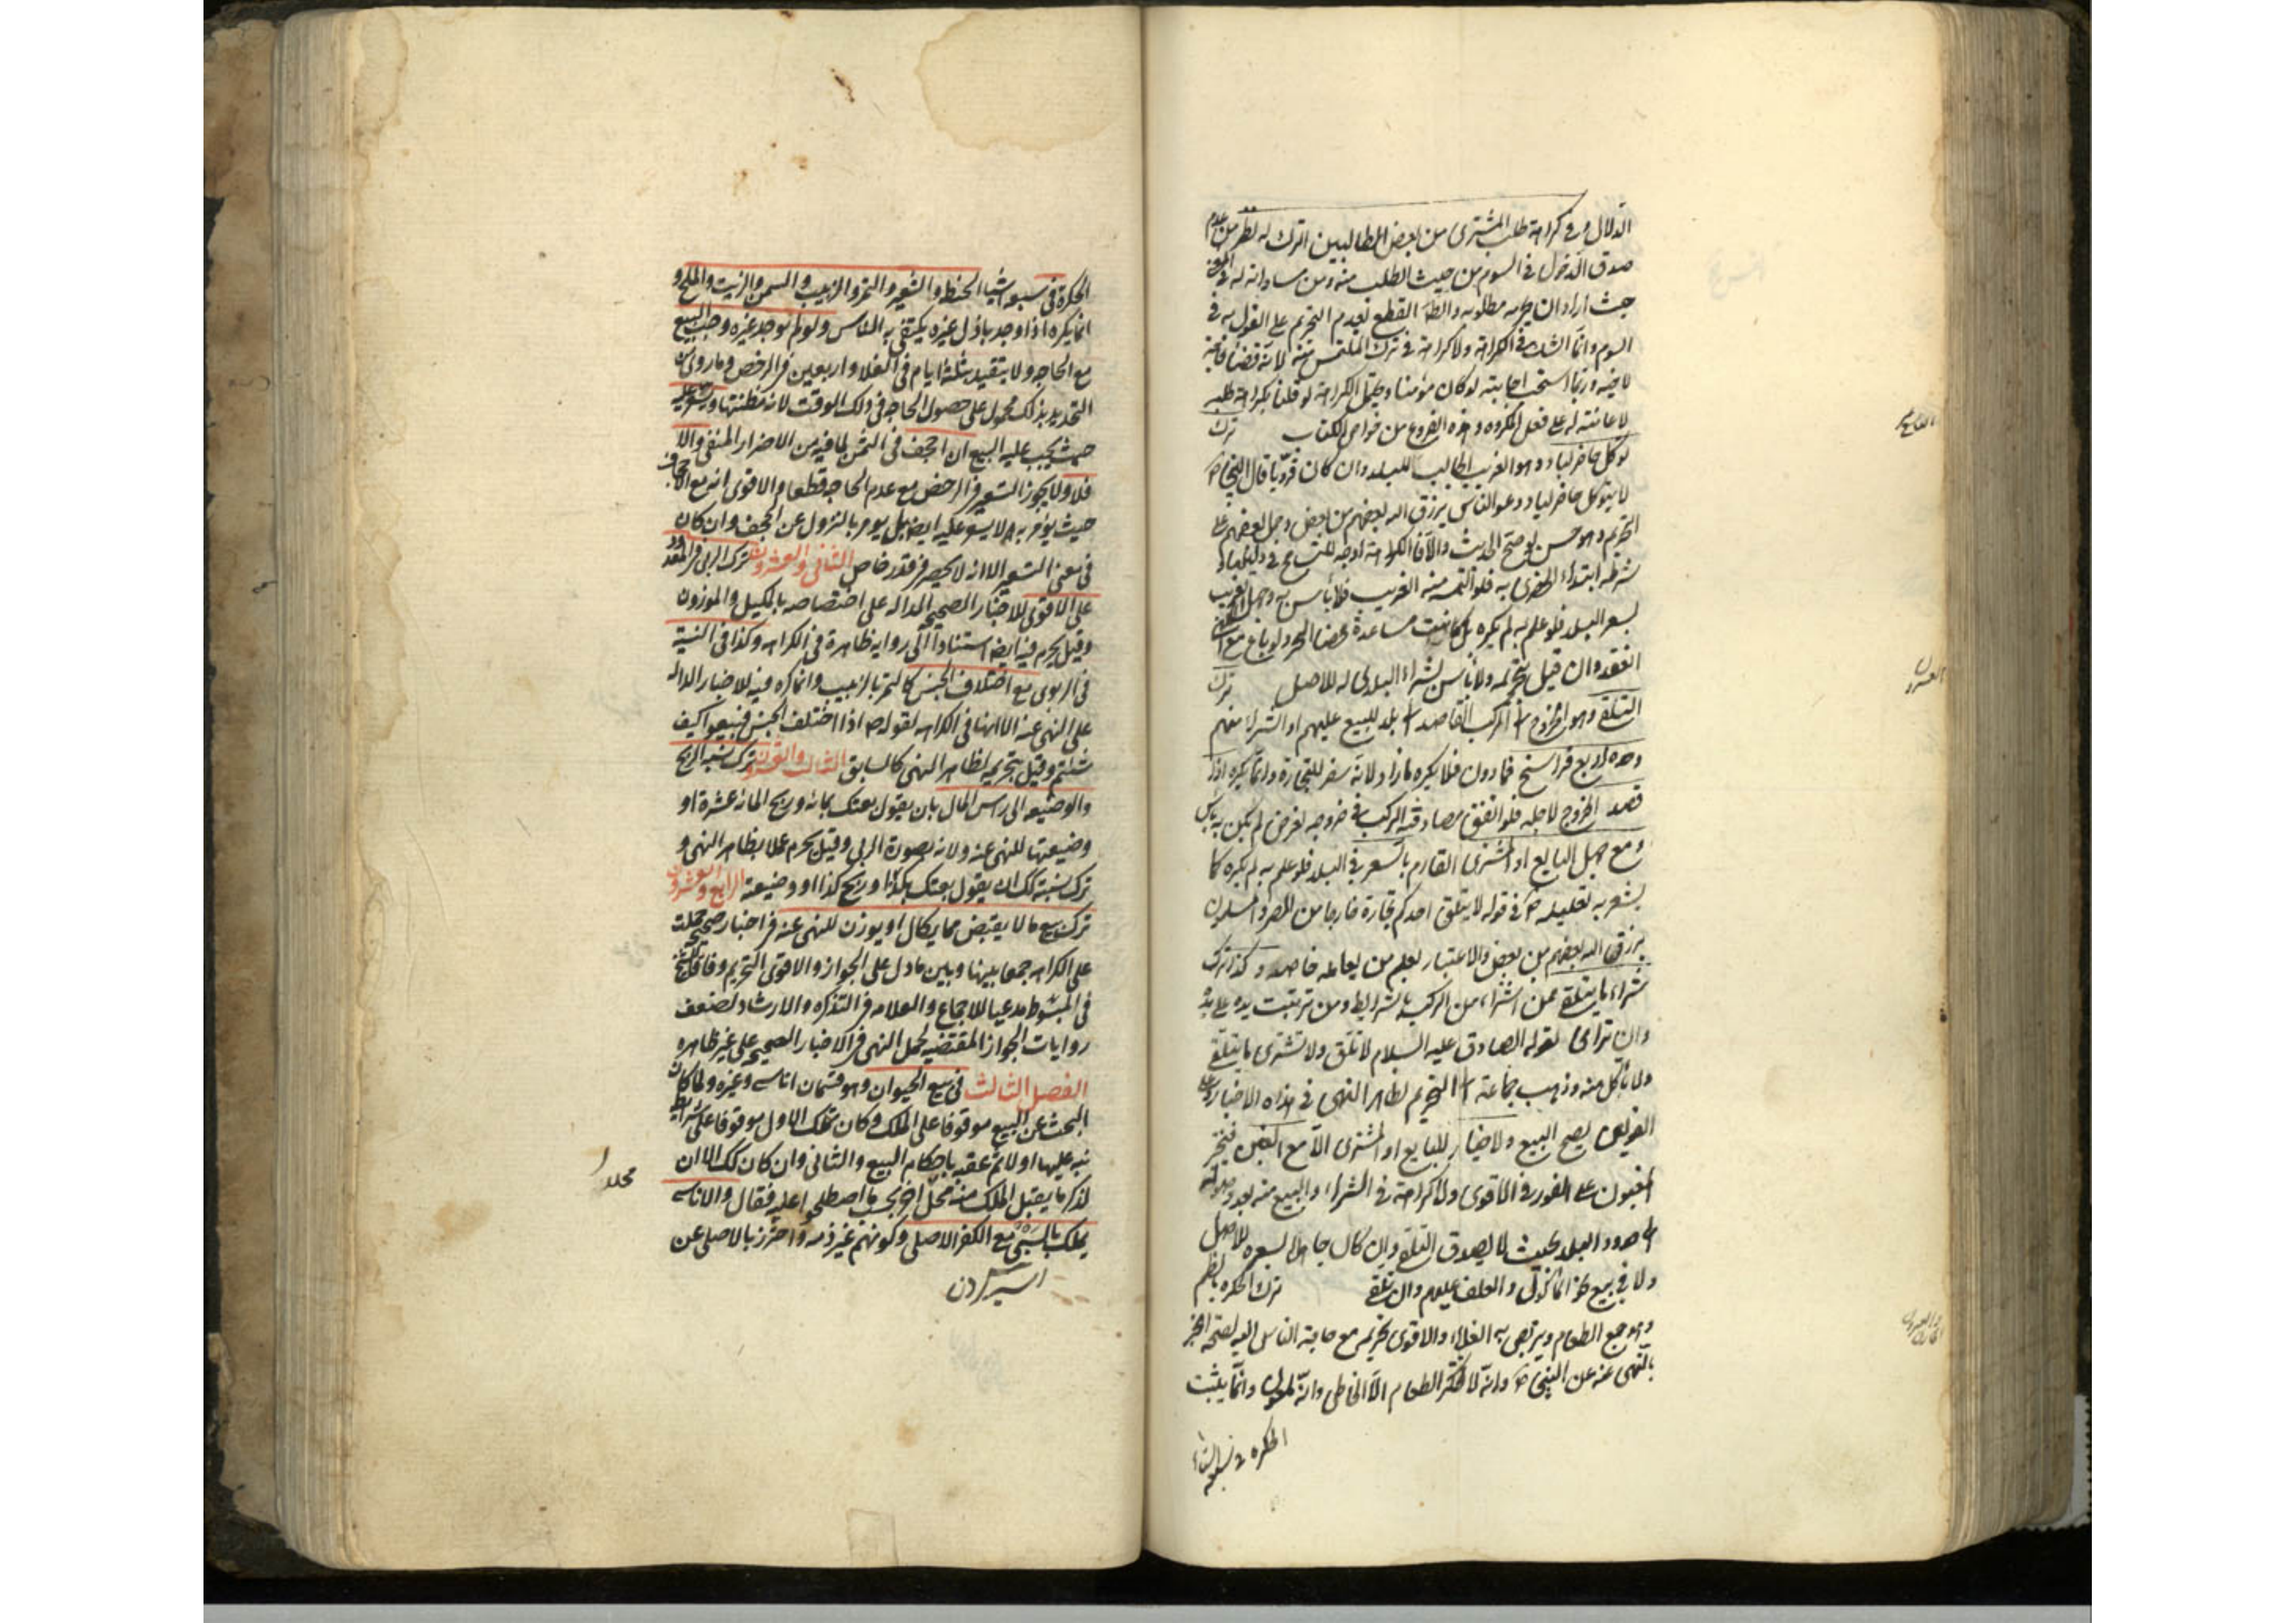 الدلال وفي كراهة طلب المشتري من بعض الطالبين الترك له نظر من عدم
صدق الدخول في السوم من حيث الطلب منه ومن مساواته له في المعنى
حيث أراد أن يحرمه مطلوبه والظ القطع بعدم التحريم على القول به في
السوم وانما الشك في الكراهة ولا كراهة في ترك الملتمس منه لأنه قضاء حاجة
لاخيه وربما استحب اجابته لو كان مؤمنا ويحتمل الكراهة لو قلنا بكراهة طلبه
لاعانته له على فعل المكروه وهذه الفروع من خواص الكتاب ترك
توكل حاضر لباد وهو الغريب الجالب للبلد وان كان قرويا قال النبي ص
لا يتوكل حاضر لباد دعوا الناس يرزق الله بعضهم من بعض وحمل بعضهم على
التحريم وهو حسن لو صح الحديث والا فالكراهة اوجه للتسامح في دليلها و
شرطه ابتداء الحضري به فلو التمسه منه الغريب فلا بأس به وجهل الغريب
بسعر البلد فلو علم به لم يكره بل كانت مساعدة محضا ولو باع مع النهي
انعقد وان قيل بتحريمه ولا بأس بشراء البلدي له للاصل ترك
التلقي وهو الخروج الى الركب القاصد الى بلد للبيع عليهم او الشراء منهم
وحده اربع فراسخ فما دون فلا يكره ما زاد لأنه سفر للتجارة وانما يكره اذا
قصد الخروج لاجله فلو اتفق مصادفة الركب في خروجه لغرض لم يكن به بأس
ومع جهل البايع او المشتري القادم بالسعر في البلد فلو علم به لم يكره كما
يشعر به تعليله ص في قوله لا يتلق احدكم تجارة خارجا من المصر والمسلمون
يرزق الله بعضهم من بعض والاعتبار بعلم من يعامله خاصه وكذا ترك
شراء ما يتلقى ممن اشتراه من الركب بالشرايط ومن ترتبت يده على يده
وان ترامى لقول الصادق عليه السلام لا تلق ولا تشتري ما يتلقى
ولا تأكل منه وذهب جماعة الى التحريم لظاهر النهي في هذه الاخبار وعلى
القولين يصح البيع ولا خيار للبايع او المشتري الا مع الغبن فيتخير
المغبون على الفور في الاقوى ولا كراهة في الشراء والبيع منه بعد وصوله
الى حدود البلد بحيث لا يصدق التلقي وان كان جاهلا بسعره للاصل
ولا في بيع نحو المأكول والعلف عليهم وان تلقى ترك الحكرة بالضم
وهو جمع الطعام ويتربص به الغلاء والاقوى تحريمه مع حاجة الناس اليه لصحة الخبر
بالنهي عنه عن النبي ص وانه لا يحتكر الطعام الا الخاطي وانه ملعون وانما يثبت
الحكره في سبعة اشياء
التاسع عشر
العشرون
الحادي والعشرون
الحكرة في سبعه اشيا الحنطه والشعير والتمر والزبيب والسمن والزيت والملح و
انما يكره اذا وجد باذل غيره يكتفي به الناس ولو لم يوجد غيره وجب البيع
مع الحاجه ولا يتقيد بثلثه ايام في الغلا واربعين في الرخص وما روي من
التحديد بذلك محمول على حصول الحاجه في ذلك الوقت لانه مظنتها ويسعر عليه
حيث يجب عليه البيع ان اجحف في الثمن لما فيه من الاضرار المنفي والا
فلا ولا يجوز التسعير في الرخص مع عدم الحاجه قطعا والاقوى انه مع الاجحاف
حيث يؤمر به لا يسعر عليه ايضا بل يومر بالنزول عن المجحف وان كان
في معنى التسعير الا انه لا يحصر في قدر خاص الثاني والعشرون ترك الربي في المعدود
على الاقوى للاخبار الصحيحه الداله على اختصاصه بالمكيل والموزون
وقيل يحرم فيه ايضا استنادا الى روايه ظاهرة في الكراهه وكذا في النسية
في الربوي مع اختلاف الجنس كالتمر بالزبيب وانما كره فيه للاخبار الداله
على النهي عنه الا انها في الكراهه لقوله ص اذا اختلف الجنس فبيعوا كيف
شئتم وقيل بتحريمه لظاهر النهي كالسابق الثالث والعشرون ترك نسبة الربح
والوضيعه الى راس المال بان يقول بعتك بمائه وربح المائه عشرة او
وضيعتها للنهي عنه ولانه بصورة الربي وقيل يحرم عملا بظاهر النهي و
ترك نسبته كك ان يقول بعتك بكذا وربح كذا او وضيعته الرابع والعشرون
ترك بيع ما لا يقبض مما يكال او يوزن للنهي عنه في اخبار صحيحه حملت
على الكراهه جمعا بينها وبين ما دل على الجواز والاقوى التحريم وفاقا للشيخ
في المبسوط مدعيا للاجماع والعلامه في التذكره والارشاد لضعف
روايات الجواز المقتضيه لحمل النهي في الاخبار الصحيحه على غير ظاهره
الفصل الثالث في بيع الحيوان وهو قسمان اناسي وغيره ولما كان
البحث عن البيع موقوفا على الملك وكان تملك الاول موقوفا على شرايط
نبه عليها اولا ثم عقبه باحكام البيع والثاني وان كان كك الا ان
لذكر ما يقبل الملك منه محلا اخر بحسب ما اصطلحوا عليه فقال والاناسي
يملك بالسبي مع الكفر الاصلي وكونهم غير ذمه واحترز بالاصلي عن
اسير كردن